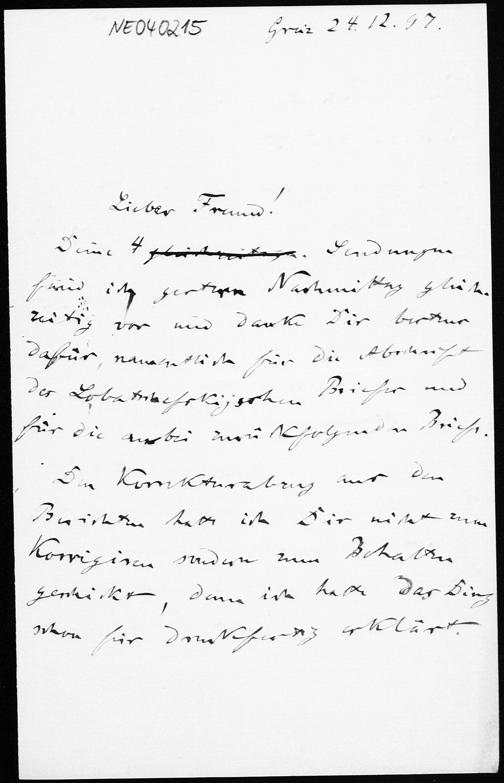 NE040215 Graz 24.12.97.
Lieber Freund!
Deine 4 gleichzeitigen. Sendungen
fand ich gestern Nachmittag gleich-
zeitig vor und danke Dir bestens
dafür, namentlich für die Abschrift
des Lobatschefskijschen Briefes und
für die anbei zurückfolgenden Briefe.
Den Korrekturabzug aus den
Berichten hatte ich Dir nicht zum
Korrigiren sondern zum Behalten
geschickt, denn ich hatte das Ding
schon für druckfertig erklärt.